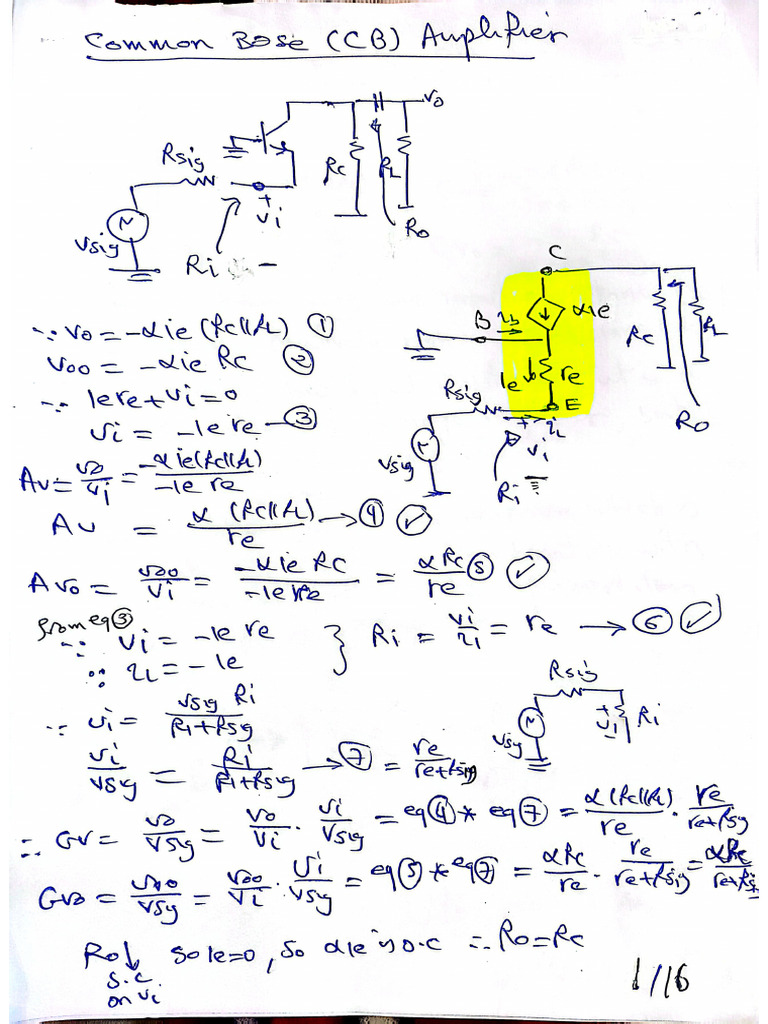 Common Base (CB) Amplifier
Vo
Rsig
Rc
RL
+
Vi
-
Vsig
Ri
Ro
C
B
ib
αie
Rc
RL
ie
re
Rsig
E
+ -
ii
Vi
Vsig
Ri
Ro
∵ Vo = -αie (Rc||RL) ①
Voo = -αie Rc ②
∵ iere + Vi = 0
Vi = -iere - ③
Av = Vo/Vi = -αie(Rc||RL)/-ie re
Av = α (Rc||RL)/re → ④ ✓
Avo = Voo/Vi = -αie Rc/-ie re = αRc/re ⑤ ✓
from eq ③
∵ Vi = -ie re } Ri = Vi/ii = re → ⑥ ✓
∵ ii = -ie
Rsig
Vsig
+
Vi
-
Ri
∵ Vi = Vsig Ri/Ri+Rsig
Vi/Vsig = Ri/Ri+Rsig → ⑦ = re/re+Rsig
∴ Gv = Vo/Vsig = Vo/Vi · Vi/Vsig = eq ④ * eq ⑦ = α(Rc||RL)/re · re/re+Rsig
Gvo = Voo/Vsig = Voo/Vi · Vi/Vsig = eq ⑤ * eq ⑦ = αRc/re · re/re+Rsig = αRc/re+Rsig
Ro↓ so ie=0, so αie is o.c ∴ Ro=Rc
S.C
on Vi
1/16